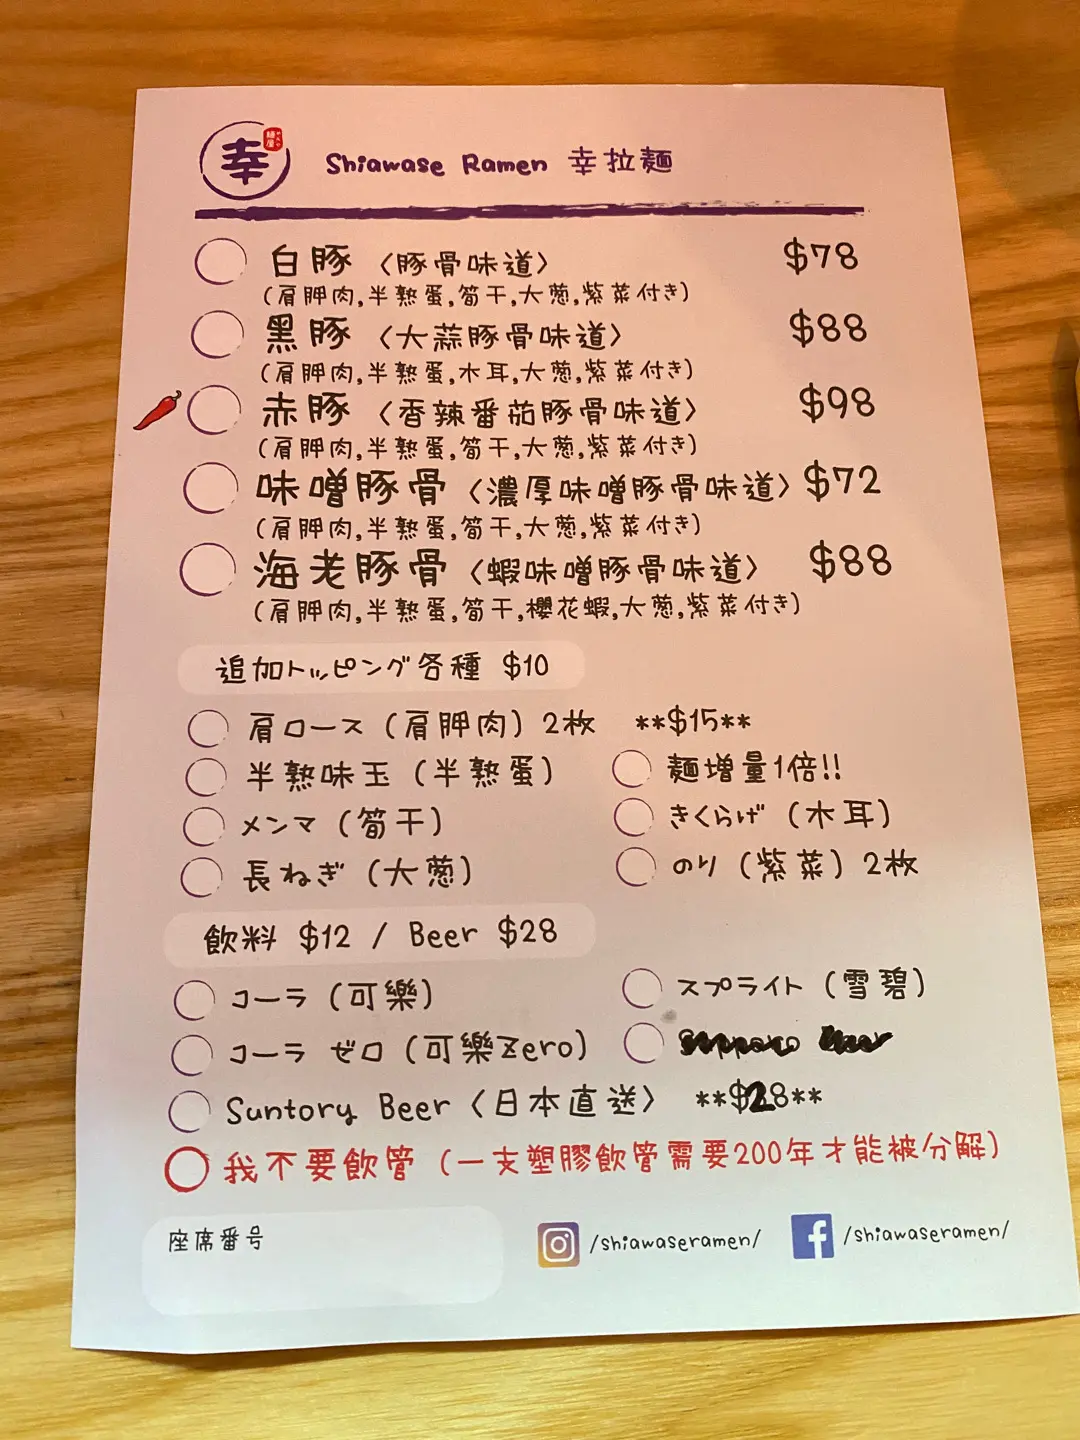 幸 麺屋
Shiawase Ramen 幸拉麵
白豚 〈豚骨味道〉 $78
(肩胛肉,半熟蛋,筍干,大葱,紫菜付き)
黑豚 〈大蒜豚骨味道〉 $88
(肩胛肉,半熟蛋,木耳,大葱,紫菜付き)
赤豚 〈香辣番茄豚骨味道〉 $98
(肩胛肉,半熟蛋,筍干,大葱,紫菜付き)
味噌豚骨 〈濃厚味噌豚骨味道〉 $72
(肩胛肉,半熟蛋,筍干,大葱,紫菜付き)
海老豚骨 〈蝦味噌豚骨味道〉 $88
(肩胛肉,半熟蛋,筍干,櫻花蝦,大葱,紫菜付き)
追加トッピング各種 $10
肩ロース (肩胛肉) 2枚 **$15**
半熟味玉 (半熟蛋) 麵增量1倍!!
メンマ (筍干) きくらげ (木耳)
長ねぎ (大葱) のり (紫菜) 2枚
飲料 $12 / Beer $28
コーラ (可樂) スプライト (雪碧)
コーラ ゼロ (可樂Zero)
Suntory Beer 〈日本直送〉 **$28**
我不要飲管 (一支塑膠飲管需要200年才能被分解)
座席番号 /shiawaseramen/ /shiawaseramen/